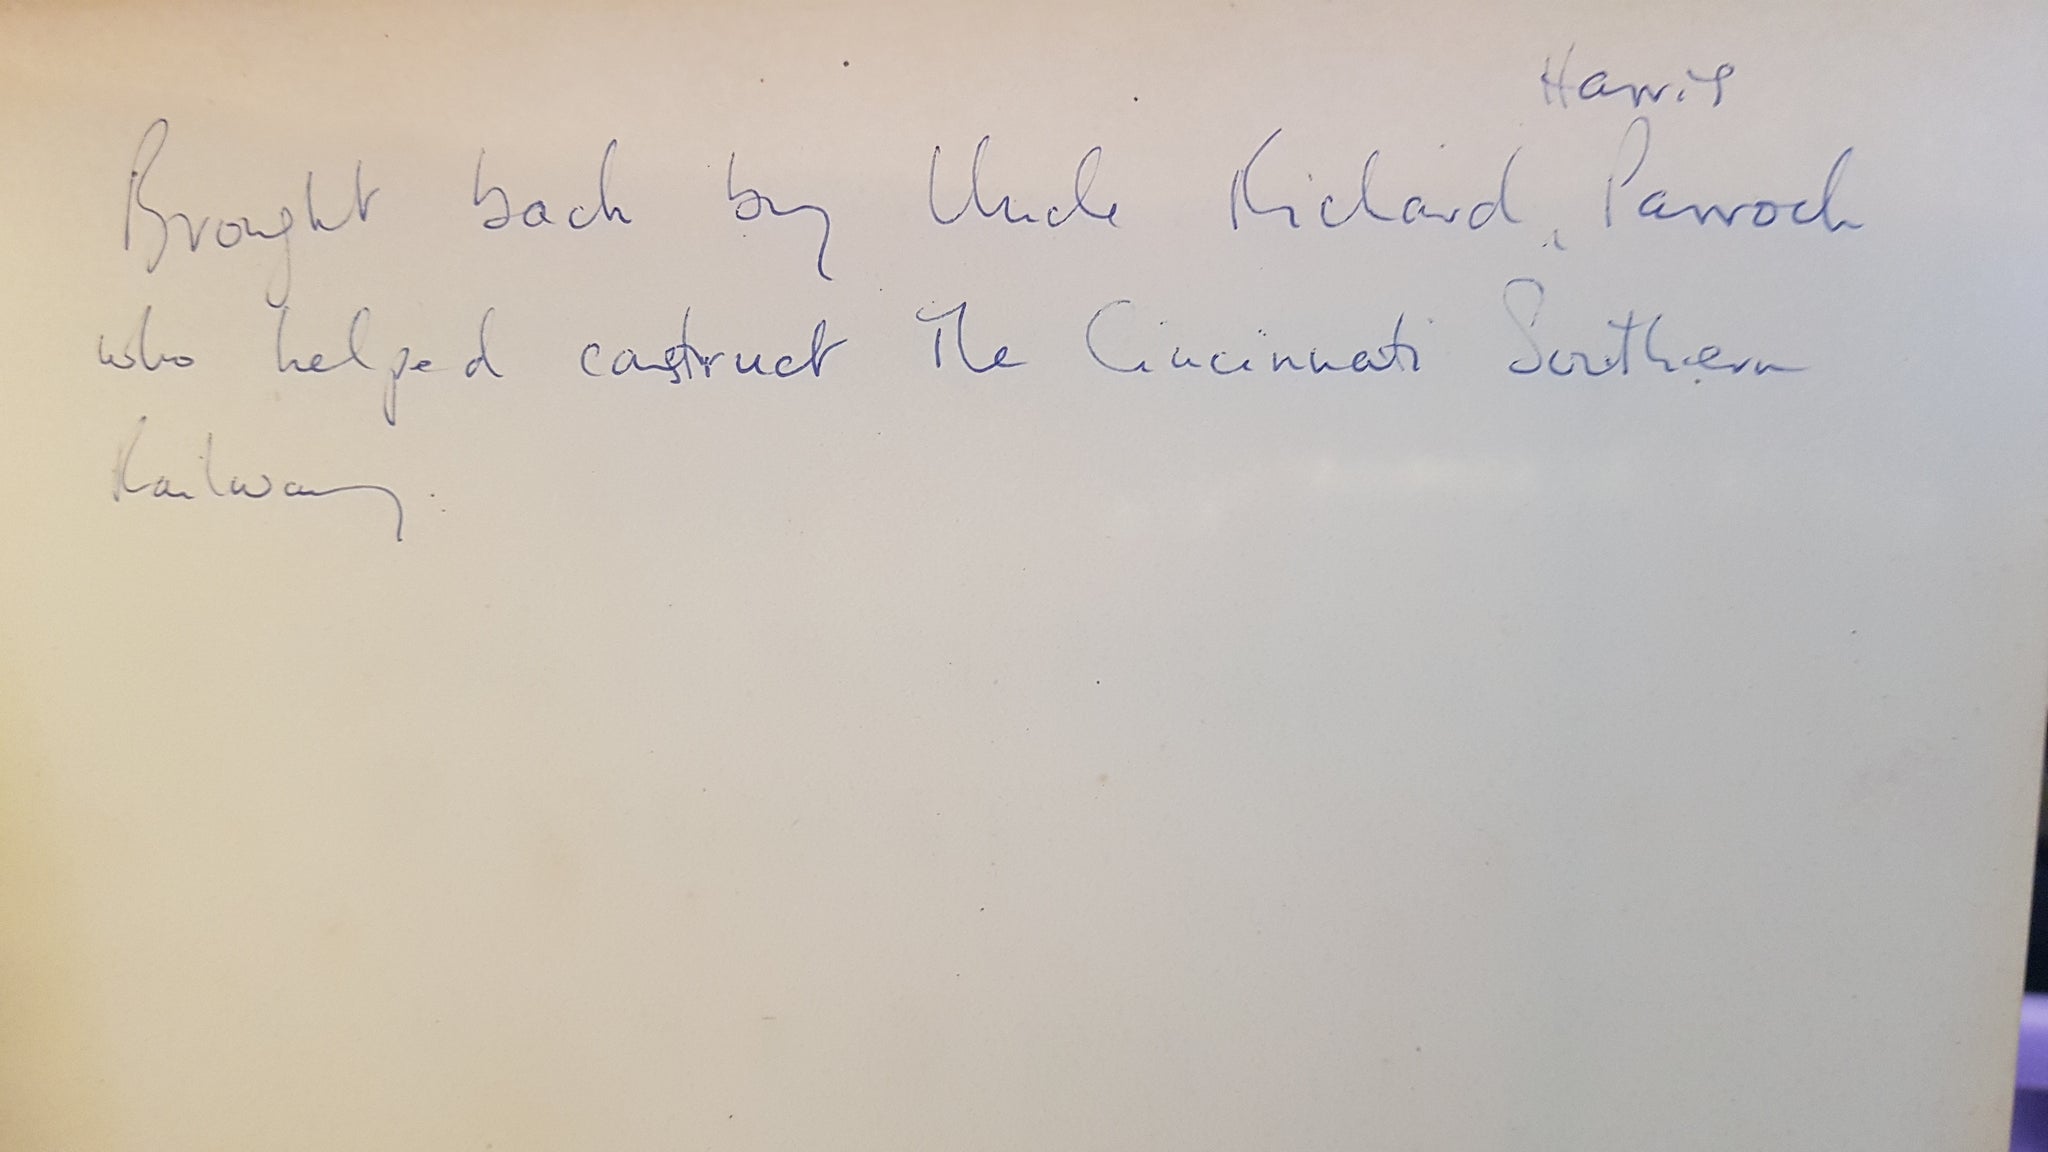 Harris
Brought back by Uncle Richard ‸ Parroch
who helped construct The Cincinnati Southern
Railway.